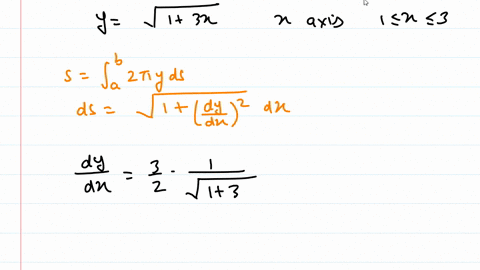 y = √(1 + 3x) x axis 1 ≤ x ≤ 3
S = ∫_a^b 2πy ds
ds = √(1 + (dy/dx)^2) dx
dy/dx = 3/2 · 1/√(1+3)